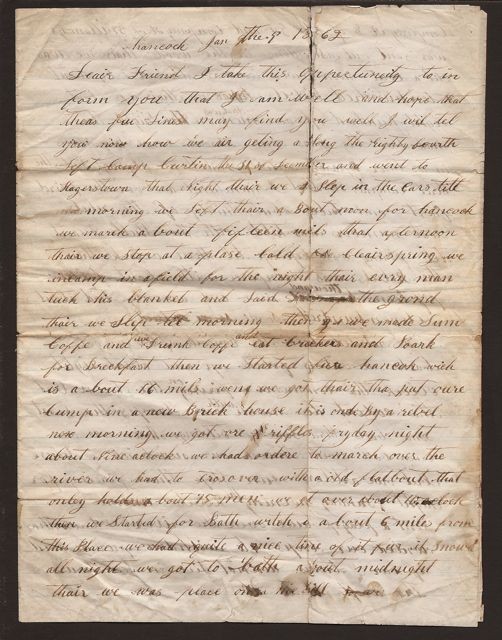 hancock Jan the 9 1862
Deair Friend I take this opertunity to in
form you that I am well and hope that
theas few lines may find you well I wil let
you now how we air geting along the eighty fourth
left Camp Curtin the 31 of December and went to
Hagerstown that night thair we Slep in the Cars till
morning we left thair a bout noon for hancock
we march a bout fifteen mils that afternoon
thair we Stop at a plase Cald Clearspring we
incamp in a field for the night thair every man
tuck his blanket and laid the grond
thair we Slep till morning then we made Sum
Coffe and we Drink Coffe and eat Crackers and Poark
for Breckfast then we Started for hancock wich
is a bout 16 mils wen we got thair tha put oure
Cump in a new Brick house it is ond By a rebel
nex morning we got ore riffles fryday night
about Nine oclock we had ordere to march over the
river we had to Cros over with a old flatbout that
onley holds a bout 75 men we got over about oclock
then we Started for Bath witch is a bout 6 mile from
this Place we had quite a nice time of it for it Snowd
all night we got to bath a bout midnight
thair we was place on the hill